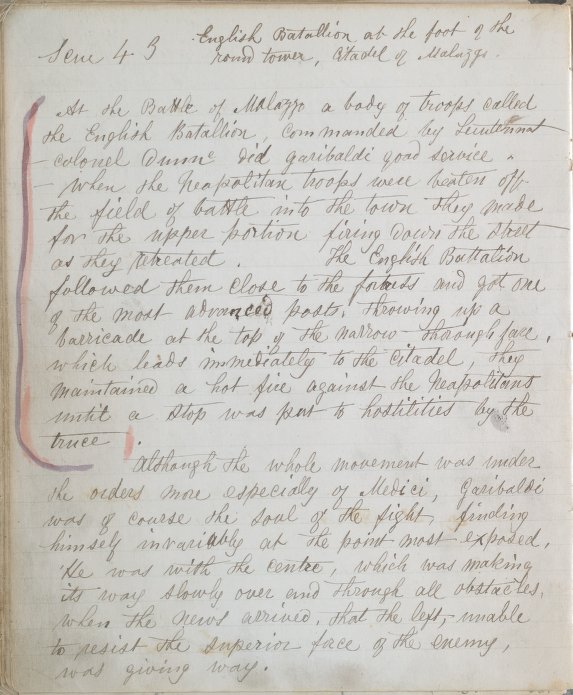 English Batallion at the foot of the
Scene 43 round tower, Citadel of Malazzo.
At the Battle of Malazzo a body of troops called
the English Batallion, commanded by Lieutenant
colonel Dunne did garibaldi good service.
When the Neapolitan troops were beaten off
the field of battle into the town they made
for the upper portion firing down the street
as they retreated. The English Battalion
followed them close to the fortress and got one
of the most advanced posts, throwing up a
barricade at the top of the narrow thoroughfare,
which leads immediately to the citadel, they
maintained a hot fire against the Neapolitans
until a stop was put to hostilities by the
truce.
Although the whole movement was under
the orders more especially of Medici, Garibaldi
was of course the soul of the fight, finding
himself invariably at the point most exposed.
He was with the centre, which was making
its way slowly over and through all obstacles,
when the news arrived, that the left, unable
to resist the superior force of the enemy,
was giving way.